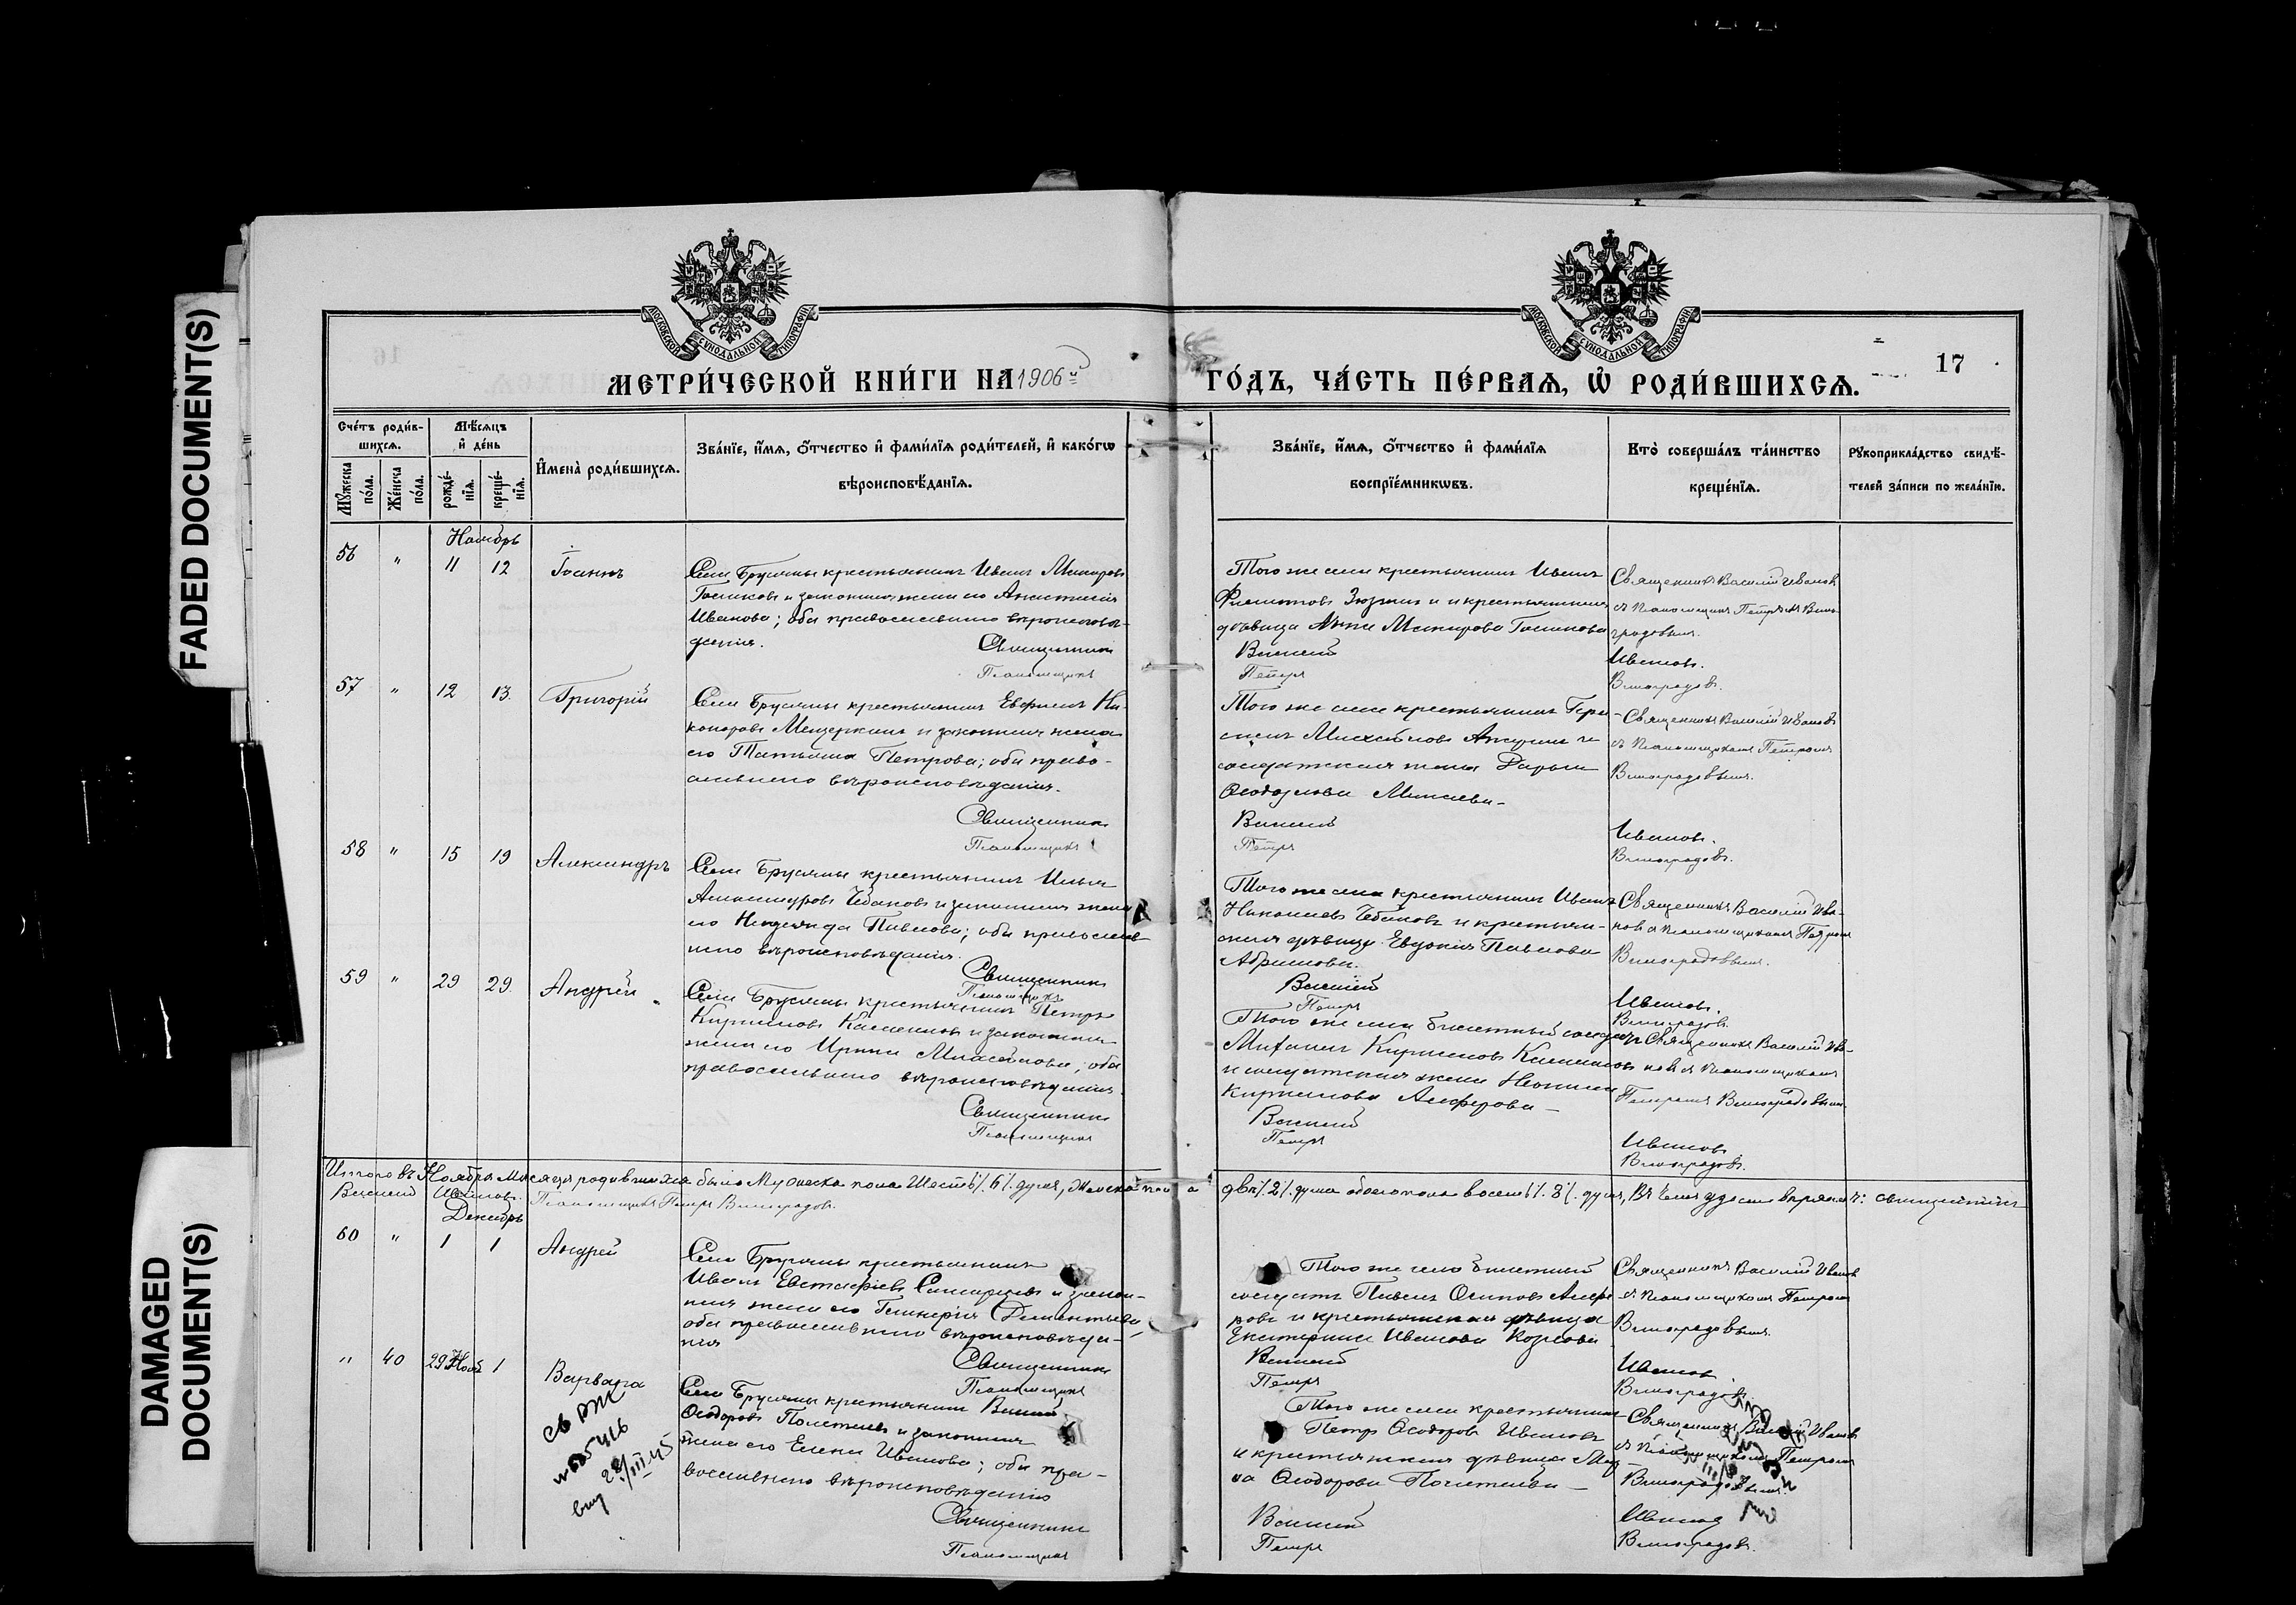 FADED DOCUMENT(S)
DAMAGED
DOCUMENT(S)
МОСКОВСКОЙ СУНОДАЛЬНОЙ ТИПОГРАФІИ
МОСКОВСКОЙ СУНОДАЛЬНОЙ ТИПОГРАФІИ
17
МЕТРИ́ЧЕСКОЙ КНИ́ГИ НА 1906й
ГО́ДЪ, ЧА́СТЬ ПЕ́РВАѦ, Ѡ҆ РОДИ́ВШИХСѦ.
Сче́тъ роди́в-
шихсѧ.
Мѣ́сѧцъ
и҆ де́нь
Мꙋ́жеска
по́ла.
Же́нска
по́ла.
рожде́-
нїѧ.
креще́-
нїѧ.
И҆мена̀ роди́вшихсѧ.
Зва́нїе, и҆́мѧ, ѻ҆́тчество и҆ фами́лїѧ роди́телей, и҆ како́гѡ
вѣроисповѣ́данїѧ.
Зва́нїе, и҆́мѧ, ѻ҆́тчество и҆ фами́лїѧ
воспрїе́мникѡвъ.
Кто̀ соверша́лъ та́инство
креще́нїѧ.
Рꙋкоприкла́дство свидѣ́-
телей за́писи по жела́нїю.
Ноябрь
56 " 11 12 Іоаннъ
Села Брусяны крестьянинъ Иванъ
и законная жена его Анастасія
Иванова; оба православнаго вѣроисповѣ-
данія.
Священникъ
Псаломщикъ
Того же села крестьянинъ Иванъ
и крестьянская
дѣвица Анна
Василій
Петръ
Священникъ Василій Иванов
съ псаломщикомъ Петромъ Вино-
градовымъ.
Ивановъ.
Виноградовъ.
57 " 12 13. Григорій
Села Брусяны крестьянинъ Евфимъ Ни-
каноровъ Мещеркинъ и законная жена
его Татьяна Петрова; оба право-
славнаго вѣроисповѣданія.
Священникъ
Псаломщикъ
Того же села крестьянинъ Гера-
симъ Михайловъ и
солдатская жена Дарья
Ѳеодорова
Василій
Петръ
Священникъ Василій Ивановъ
съ псаломщикомъ Петромъ
Виноградовымъ.
Ивановъ.
Виноградовъ.
58 " 15 19 Александръ
Села Брусяны крестьянинъ Илья
Александровъ Чебаковъ и законная жена
его Надежда Павлова; оба православ-
наго вѣроисповѣданія.
Священникъ
Псаломщикъ
Того же села крестьянинъ Иванъ
Николаевъ Чебаковъ и крестьян-
ская дѣвица Евдокія Павлова
Абрамова.
Василій
Петръ
Священникъ Василій Ива-
нов съ псаломщикомъ Петромъ
Виноградовымъ.
Ивановъ.
Виноградовъ.
59 " 29 29. Андрей
Села Брусяны крестьянинъ Петръ
Кирилловъ и законная
жена его Ирина Михайлова; оба
православнаго вѣроисповѣданія.
Священникъ
Псаломщикъ
Того же села билетный солдатъ
Михаилъ Кирилловъ
и солдатская жена
Кириллова Алферова
Василій
Петръ
Священникъ Василій Ива-
нов съ псаломщикомъ
Петромъ Виноградовымъ
Ивановъ
Виноградовъ.
Итого въ Ноябрѣ мѣсяцѣ родившихся было мужеска пола шесть /.6/. душъ, женска пола двѣ /.2/. души обоего пола восемь /.8/. душъ, въ чемъ удостовѣряемъ: священникъ
Василій Ивановъ. Псаломщикъ Петръ Виноградовъ.
Декабрь
60 " 1 1 Андрей
Села Брусяны крестьянинъ
Иванъ Евстафіевъ и закон-
ная жена его Гликерія Дементьева
оба православнаго вѣроисповѣда-
нія
Священникъ
Псаломщикъ
Того же села билетный
солдатъ Павелъ Осиповъ Алфе-
ровъ и крестьянская дѣвица
Екатерина Иванова
Василій
Петръ
Священникъ Василій Иванов
съ псаломщикомъ Петромъ
Виноградовымъ.
Ивановъ
Виноградовъ.
" 40 29 Нояб 1 Варвара
Села Брусяны крестьянинъ Василій
Ѳеодоровъ Полетаевъ и законная
жена его Елена Иванова; оба пра-
вославнаго вѣроисповѣданія
Священникъ
Псаломщикъ
Того же села крестьянинъ
Петръ Ѳеодоровъ Ивановъ
и крестьянская дѣвица
Ѳеодорова Полетаева
Василій
Петръ
Священникъ Василій Ивановъ
съ псаломщикомъ Петромъ
Виноградовымъ.
Ивановъ
Виноградовъ.
28/III 45